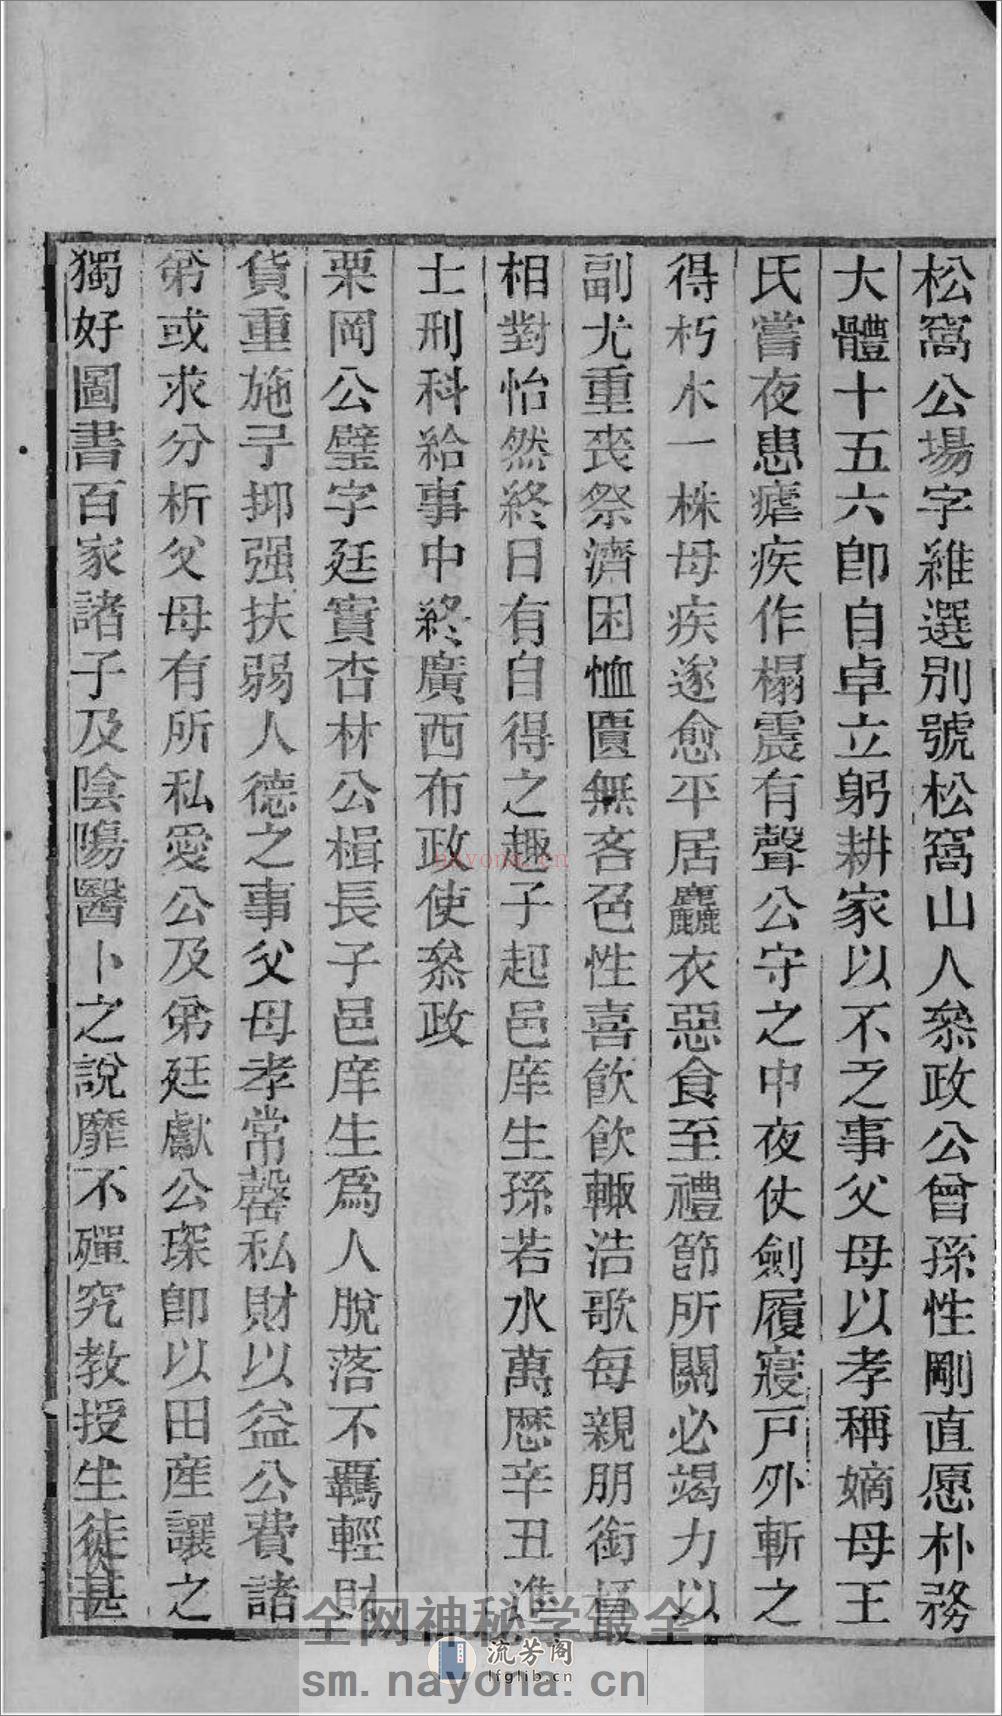 松窩公場字維選別號松窩山人叅政公曾孫性剛直愿朴務
大體十五六卽自卓立躬耕家以不乏事父母以孝稱嫡母王
氏嘗夜患瘧疾作榻震有聲公守之中夜仗劍履寢戶外斬之
得朽木一株母疾遂愈平居麤衣惡食至禮節所關必竭力以
副尤重丧祭濟困恤匱無吝色性喜飮飮輙浩歌每親朋銜杯
相對怡然終日有自得之趣子起邑庠生孫若水萬厯辛丑進
士刑科給事中終廣西布政使叅政
栗岡公璧字廷實杏林公楫長子邑庠生爲人脫落不羈輕財
貨重施予抑强扶弱人德之事父母孝常罄私財以益公費諸
弟或求分析父母有所私愛公及弟廷獻公琛卽以田産讓之
獨好圖書百家諸子及陰陽醫卜之說靡不殫究教授生徒甚
nayona.cn
全网神秘学最全
流芳阁
lfglib.cn
sm.nayona.cn